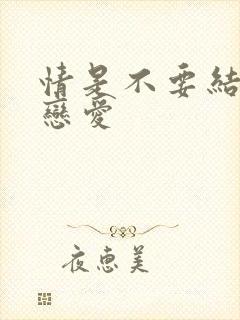 情是不要結
戀愛
夜惠美